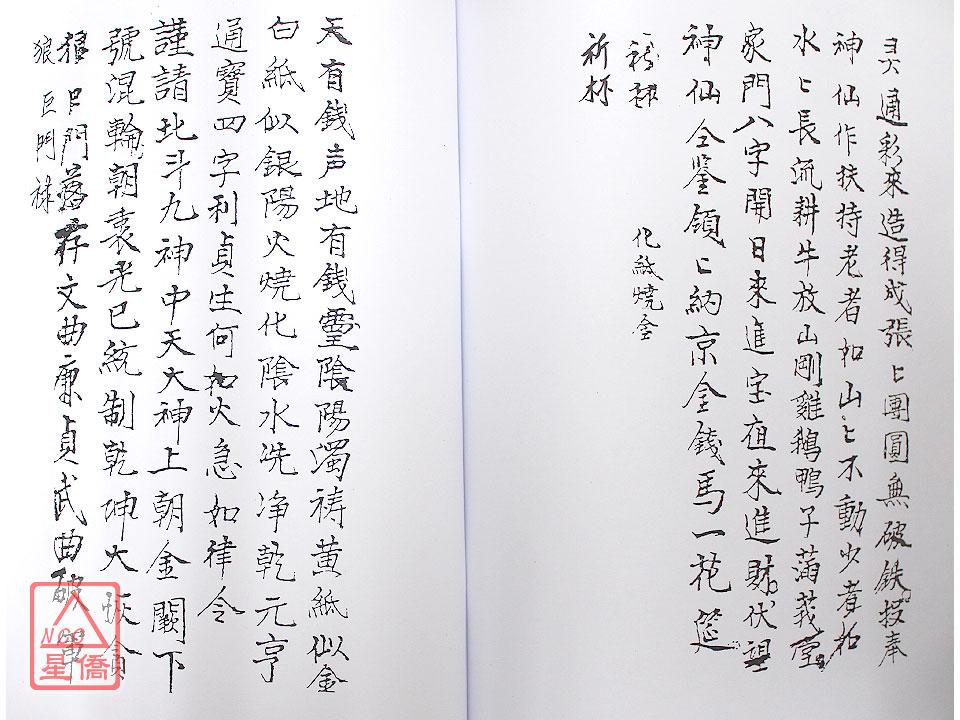 灵通彩來造得成張〻團圓無破鉄投奉
神仙作扶持老者如山〻不動少者如
水〻長流耕牛放山剛雞鵝鴨子滿義堂
家門八字開日來進宝夜來進財伏望
神仙全鉴領〻納京金錢馬一花筵
化紙燒金
祈杯
天有錢声地有錢靈陰陽濁祷黃紙似金
白紙似銀陽火燒化陰水洗净乾元亨
通寶四字利貞生何如火急如律令
謹請北斗九神中天大神上朝金闕下
號混輪朝袁光已統制乾坤大 貪
狼 巨門 祿存文曲廉貞武曲破軍
狼 巨門 祿
NCC
星僑